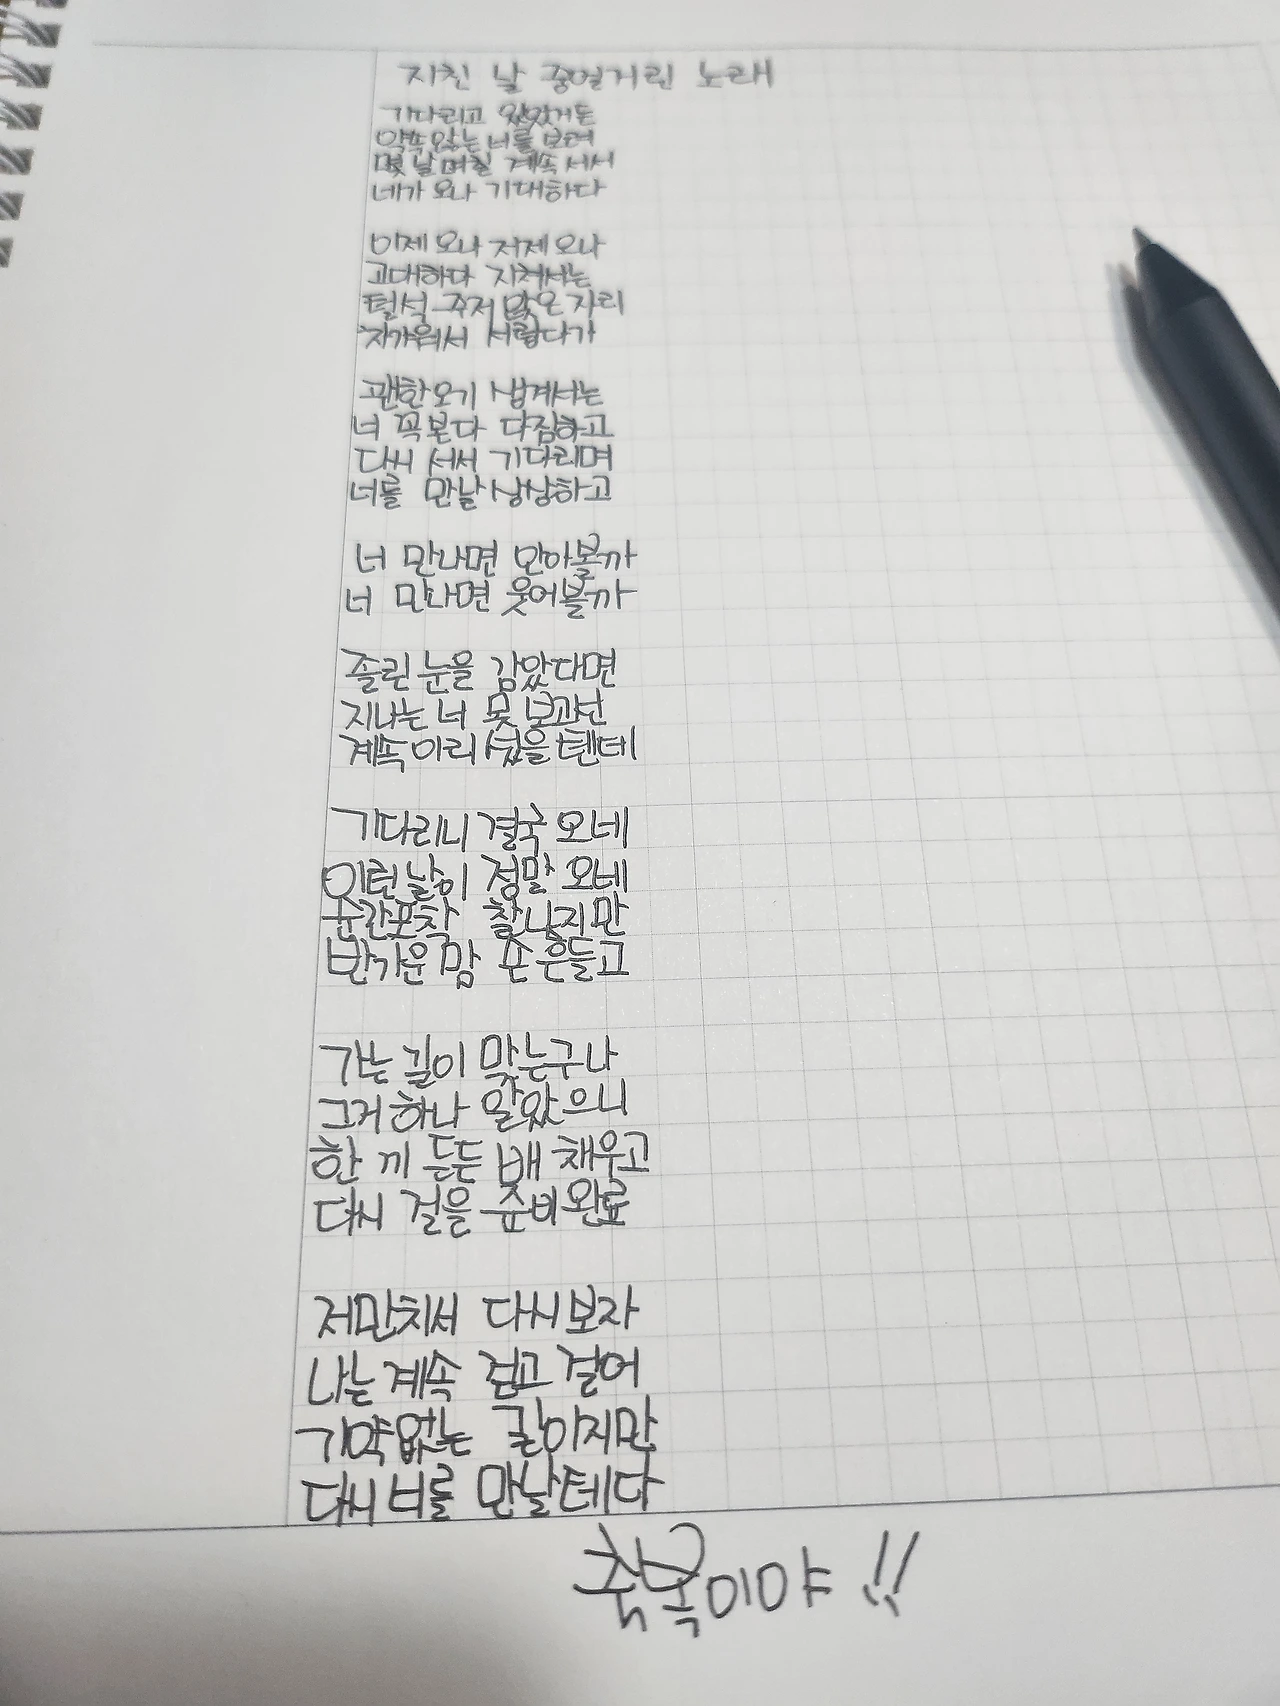 지친 날 중얼거린 노래
기다리고 있었거든
약속 않는 너를 보려
몇 날 며칠 계속 서서
네가 오나 기대하다
이제 오나 저제 오나
고대하다 지쳐서는
털석 주저 앉은 자리
차가워서 서럽다가
괜한 오기 생겨서는
너 꼭 본다 다짐하고
다시 서서 기다리며
너를 만날 상상하고
너 만나면 안아볼까
너 만나면 웃어볼까
졸린 눈을 감았다면
지나는 너 못 보과선
계속 이리 섰을 텐데
기다리니 결국 오네
이런 날이 정말 오네
순간포착 찰나지만
반가운 맘 손 흔들고
가는 길이 맞는구나
그거 하나 알았으니
한 끼 든든 배 채우고
다시 걸을 준비완료
저만치서 다시 보자
나는 계속 걷고 걸어
기약없는 길이지만
다시 너를 만날테다
이야!!